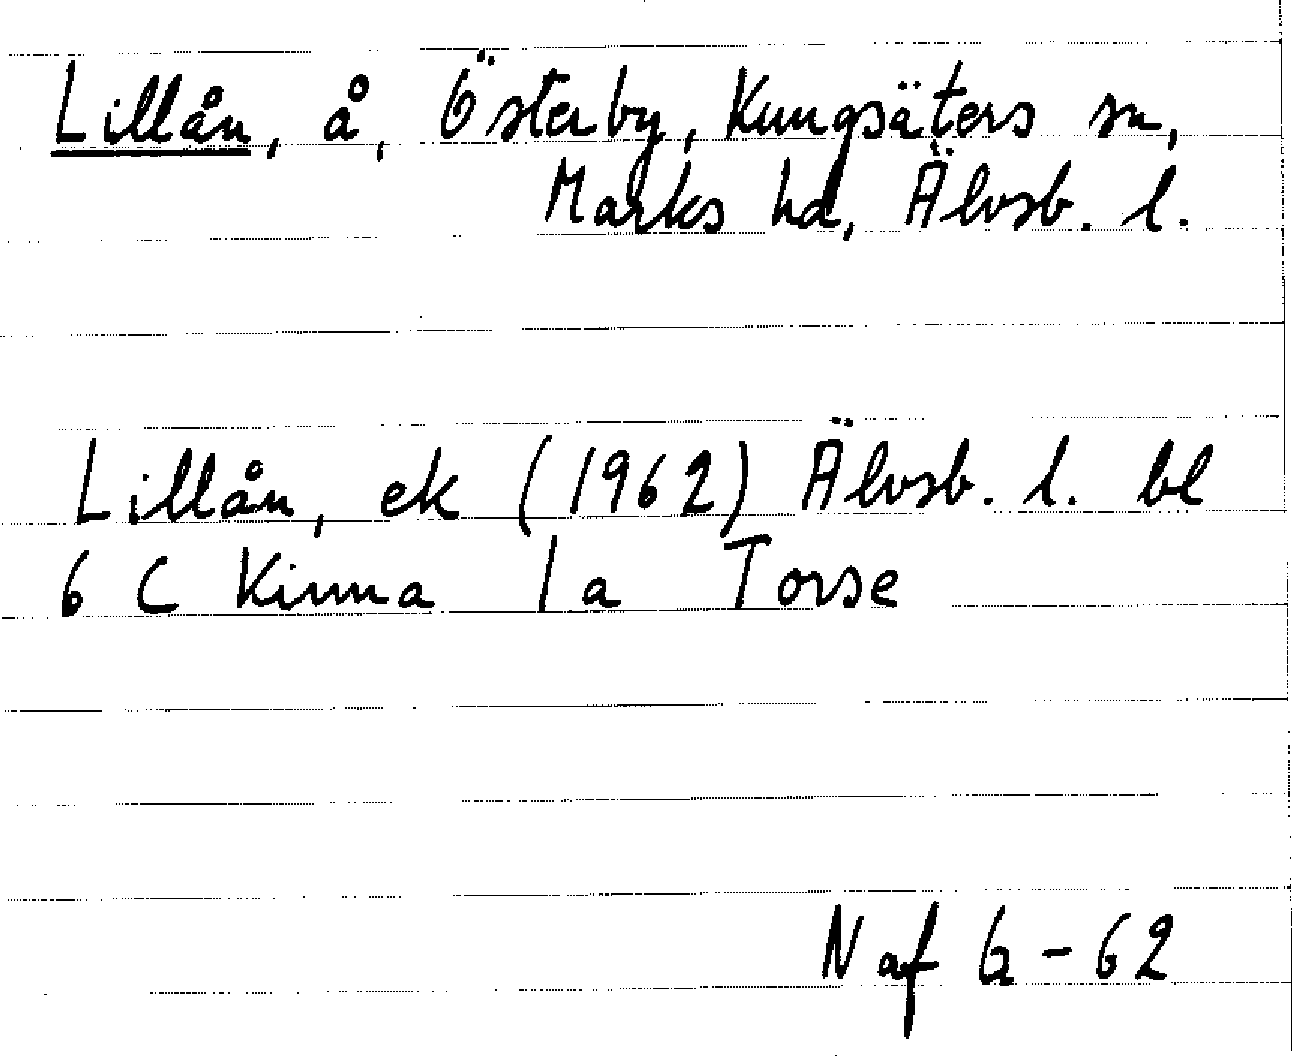 Lillån, å, Österby, Kungsäters sn,
Marks hd, Älvsb. l.
Lillån, ek (1962) Älvsb. l. bl
6 C Kinna 1 a Torse
N af G - 62